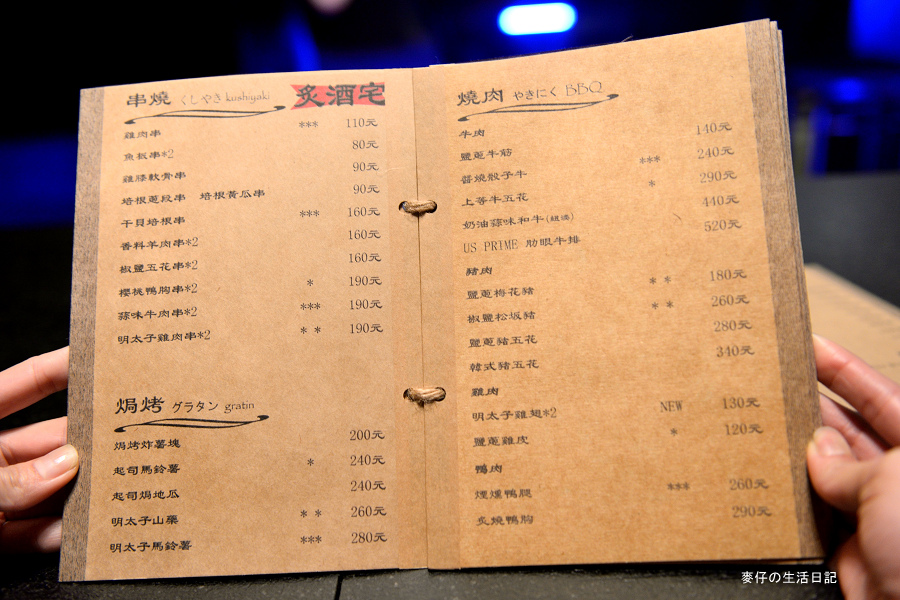 串燒 くしやき kushiyaki 炙酒宅
雞肉串 *** 110元
魚板串*2 80元
雞膝軟骨串 90元
培根蔥段串 培根黃瓜串 90元
干貝培根串 *** 160元
香料羊肉串*2 160元
椒鹽五花串*2 160元
櫻桃鴨胸串*2 * 190元
蒜味牛肉串*2 *** 190元
明太子雞肉串*2 * * 190元
焗烤 グラタン gratin
焗烤炸薯塊 200元
起司馬鈴薯 * 240元
起司焗地瓜 240元
明太子山藥 * * 260元
明太子馬鈴薯 *** 280元
燒肉 やきにく BBQ
牛肉
鹽蔥牛筋 140元
醬燒骰子牛 *** 240元
上等牛五花 * 290元
奶油蒜味和牛 440元
US PRIME 肋眼牛排 520元
豬肉
鹽蔥梅花豬 * * 180元
椒鹽松坂豬 * * 260元
鹽蔥豬五花 280元
韓式豬五花 340元
雞肉
明太子雞翅*2 NEW 130元
鹽蔥雞皮 * 120元
鴨肉
煙燻鴨腿 *** 260元
炙燒鴨胸 290元
麥仔の生活日記